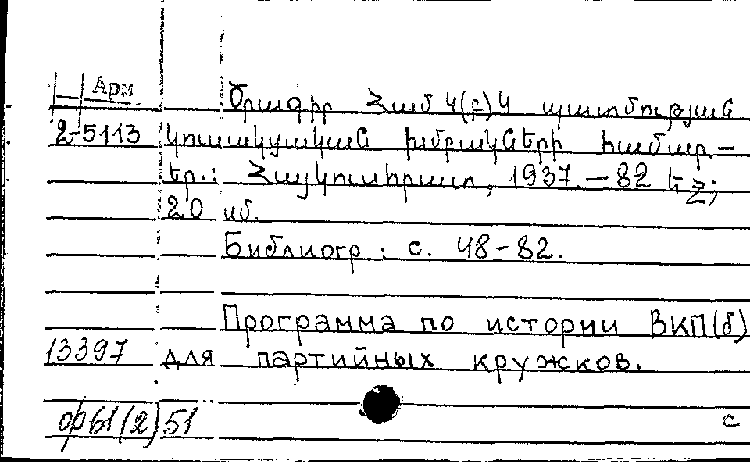 Арм
Ծրագիր ՀամԿ(բ)Կ պատմության
2-5113 կուսակցական խմբակների համար.—
Եր.: Հայկուսհրատ, 1937.—82 էջ;
20 սմ.
Библиогр.: с. 48-82.
Программа по истории ВКП(б)
13397 для партийных кружков.
ор61(2)51 с